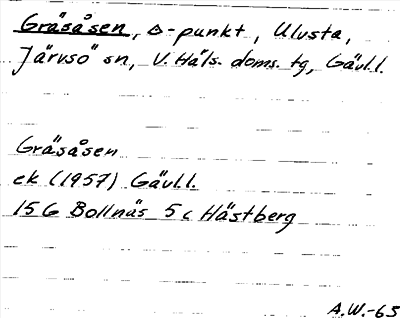 Gräsåsen, △-punkt, Ulvsta,
Järvsö sn, V. Häls. doms. tg, Gävl.l.
Gräsåsen
ek (1957) Gävl.l.
15 G Bollnäs 5 c Hästberg
A.W.-65